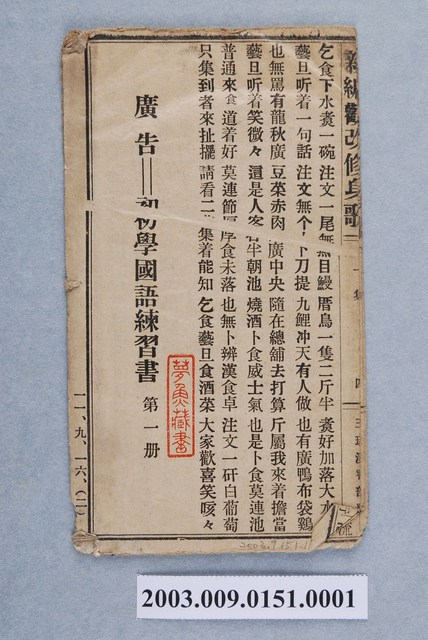 新編勸改修身歌
四
乞食下水煑一碗 注文一尾無目鰻 厝鳥一隻二斤半 煑好加落大水
藝旦听着一句話 注文無个卜刀提 九鯉冲天有人做 也有廣鴨布袋鷄
也無罵有龍秋廣 豆菜赤肉廣中央 隨在總舖去打算 斤屬我來着擔當
藝旦听着笑微々 這是人客半朝池 燒酒卜食威士氣 也是卜食莫連池
普通來食道着好 莫連節食未落 也無卜辨漢食卓 注文一矸白葡萄
只集到者來扯擺 請看二集着能知 乞食藝旦食酒菜 大家歡喜笑咳々
廣告══初學國語練習書 第一册
夢魚藏書
一一、九、一六、(二)
2003.009.0151.0001